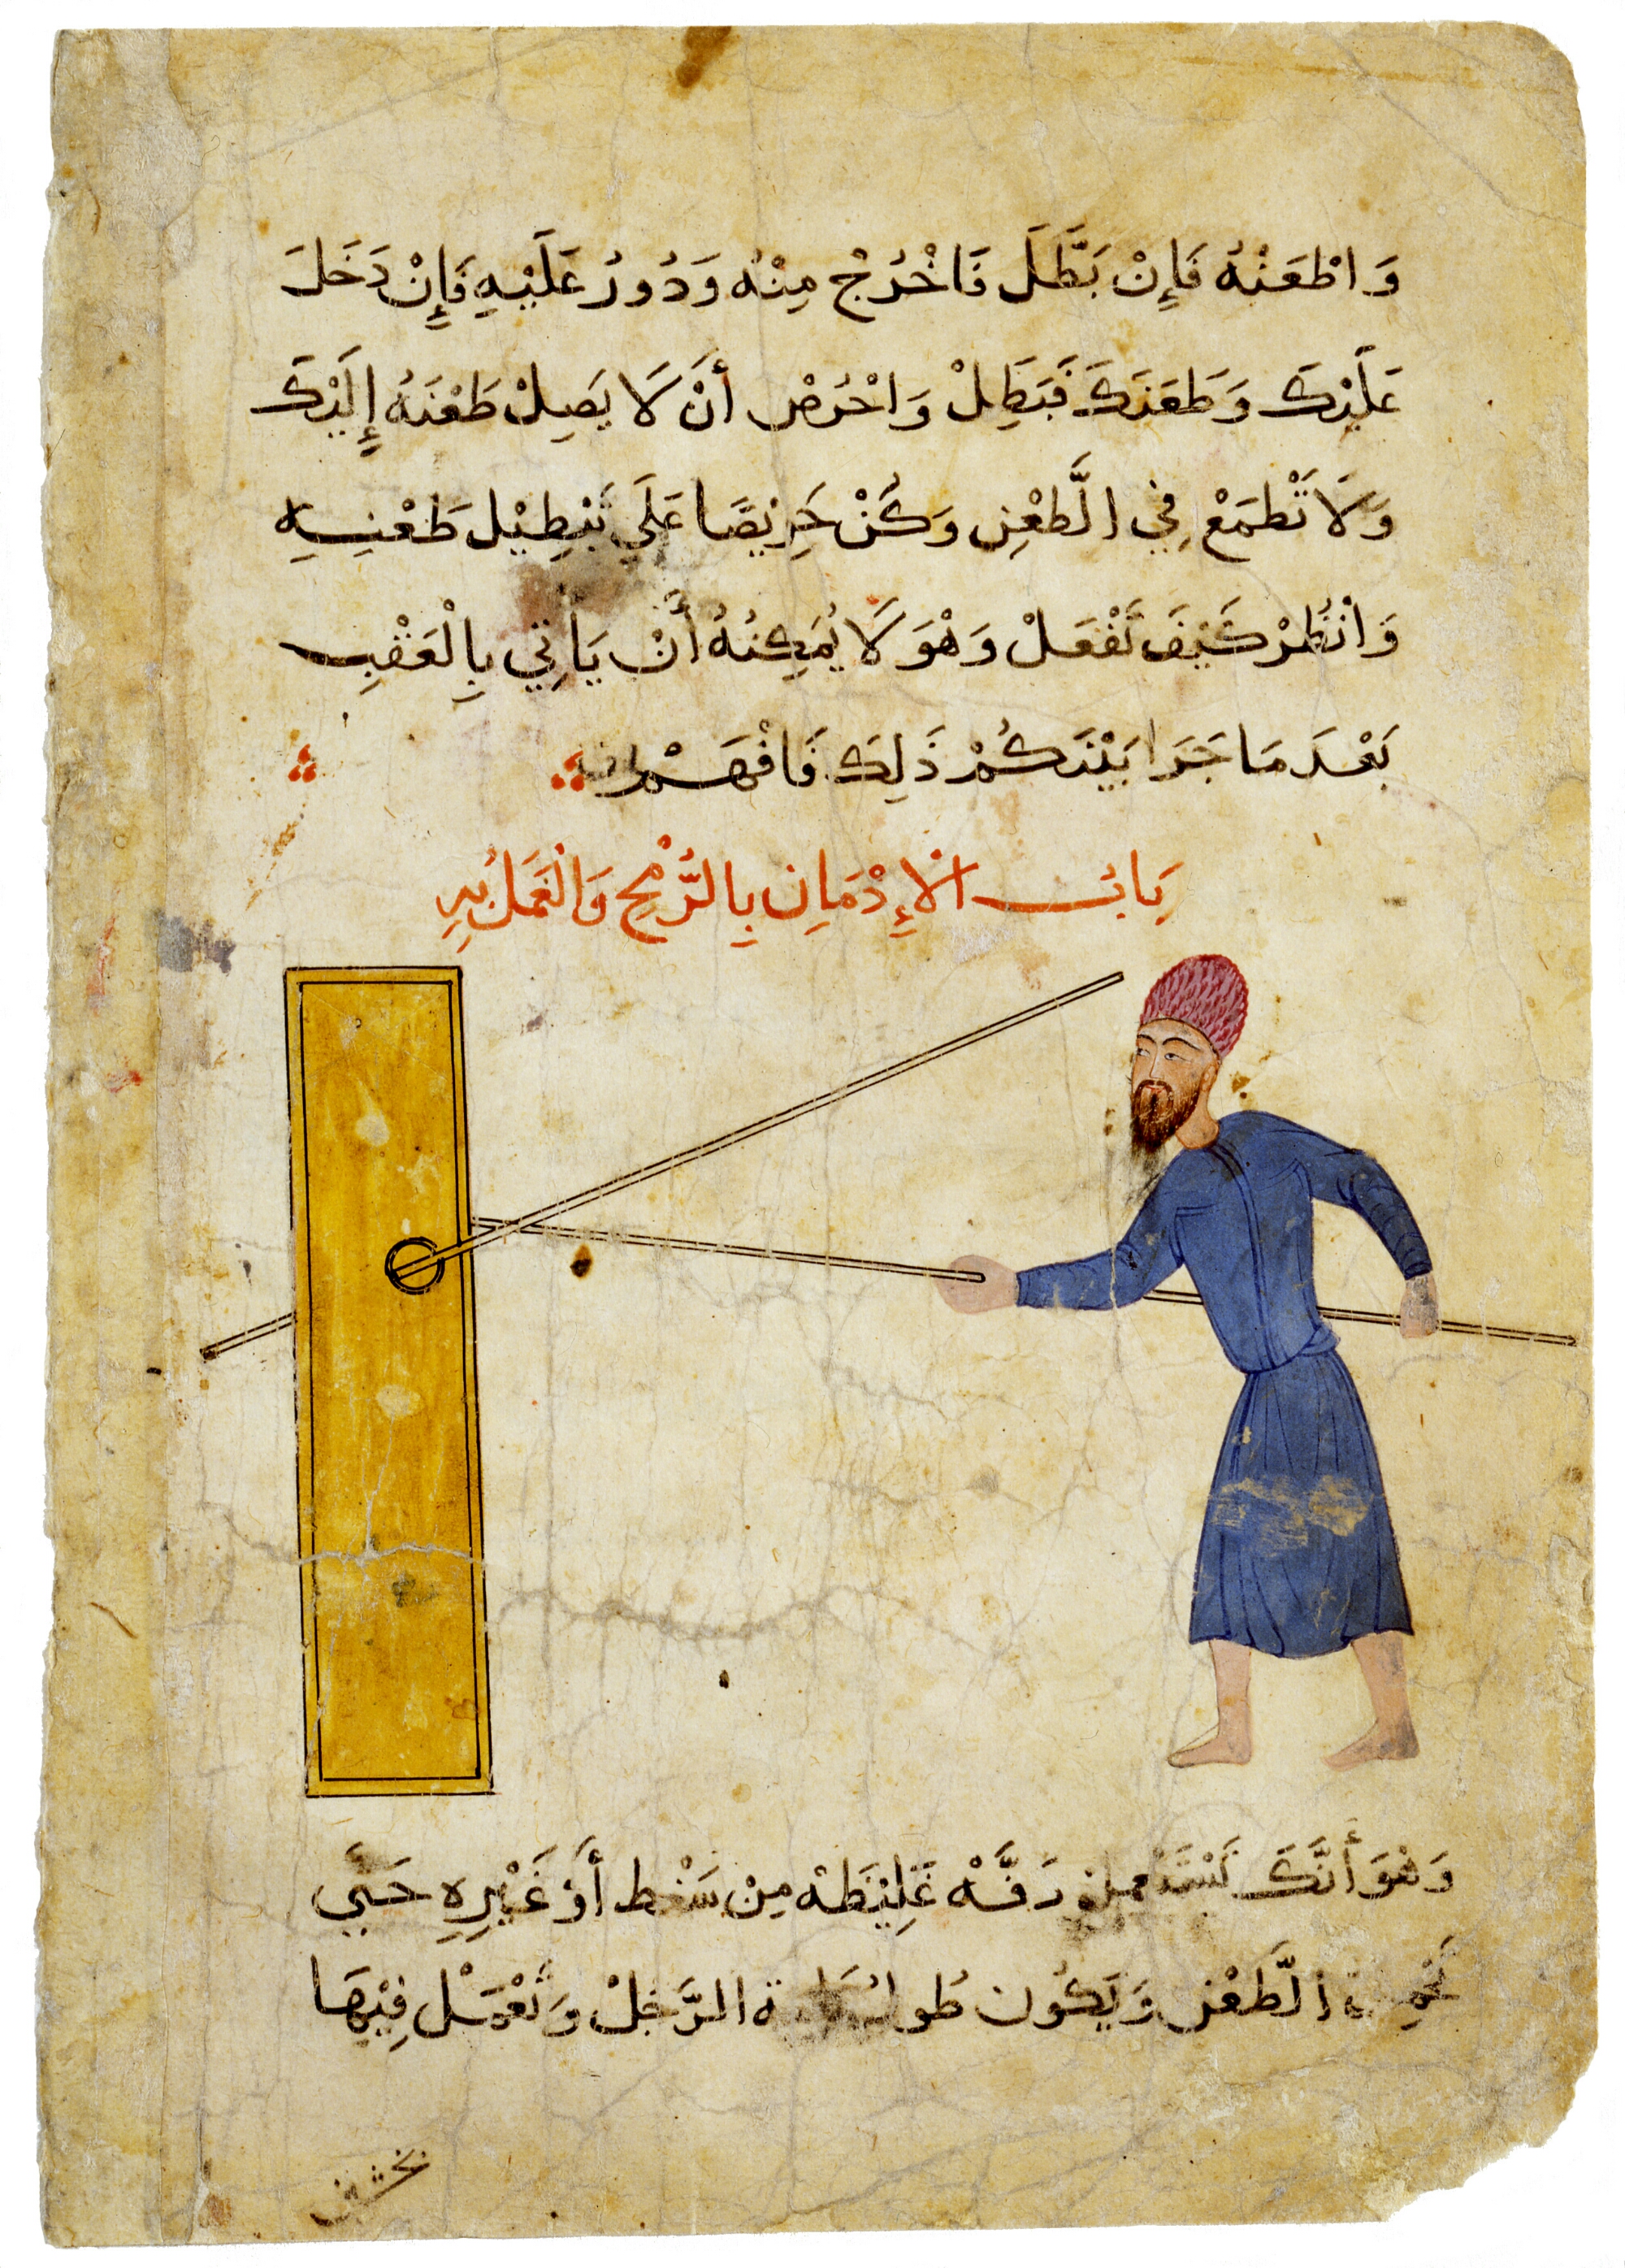 وَاطْعَنْهُ فَإِنْ بَطَّلَ فَاخْرُجْ مِنْهُ وَدُورُ عَلَيْهِ فَإِنْ دَخَلَ
عَلَيْكَ وَطَعَنَكَ فَبَطِلْ وَاحْرُصْ أَنْ لَا يَصِلْ طَعْنَهُ إِلَيْكَ
وَلَا تَطْمَعْ فِي الطَّعْنِ وَكُنْ حَرِيْصًا عَلَي تَبْطِيْل طَعْنِيِهِ
وَانْظُرْ كَيْفَ تَفْعَلْ وَهْوَ لَا يُمَكِنُهُ أَنْ يَأتِي بِالْعَقْبِ
بَعْدَ مَا جَرَا بَيْنَكُمْ ذَلِكَ فَافْهَمْ
بَابُ الْإِدْمَانِ بِالرُّمْحِ وَالْعَمَلُ بِهِ
وَهْوَ أَنَّكَ تَسْتَعْمِلْ دَفَّهْ غَلِيْظَهْ مِنْ سَنْط أَوْ غَيْرِهِ حَتَّي
الطَّعْن وَيَكُون طُولُهَا الرَّجُلْ وَتَعْمَلْ فِيْهَا